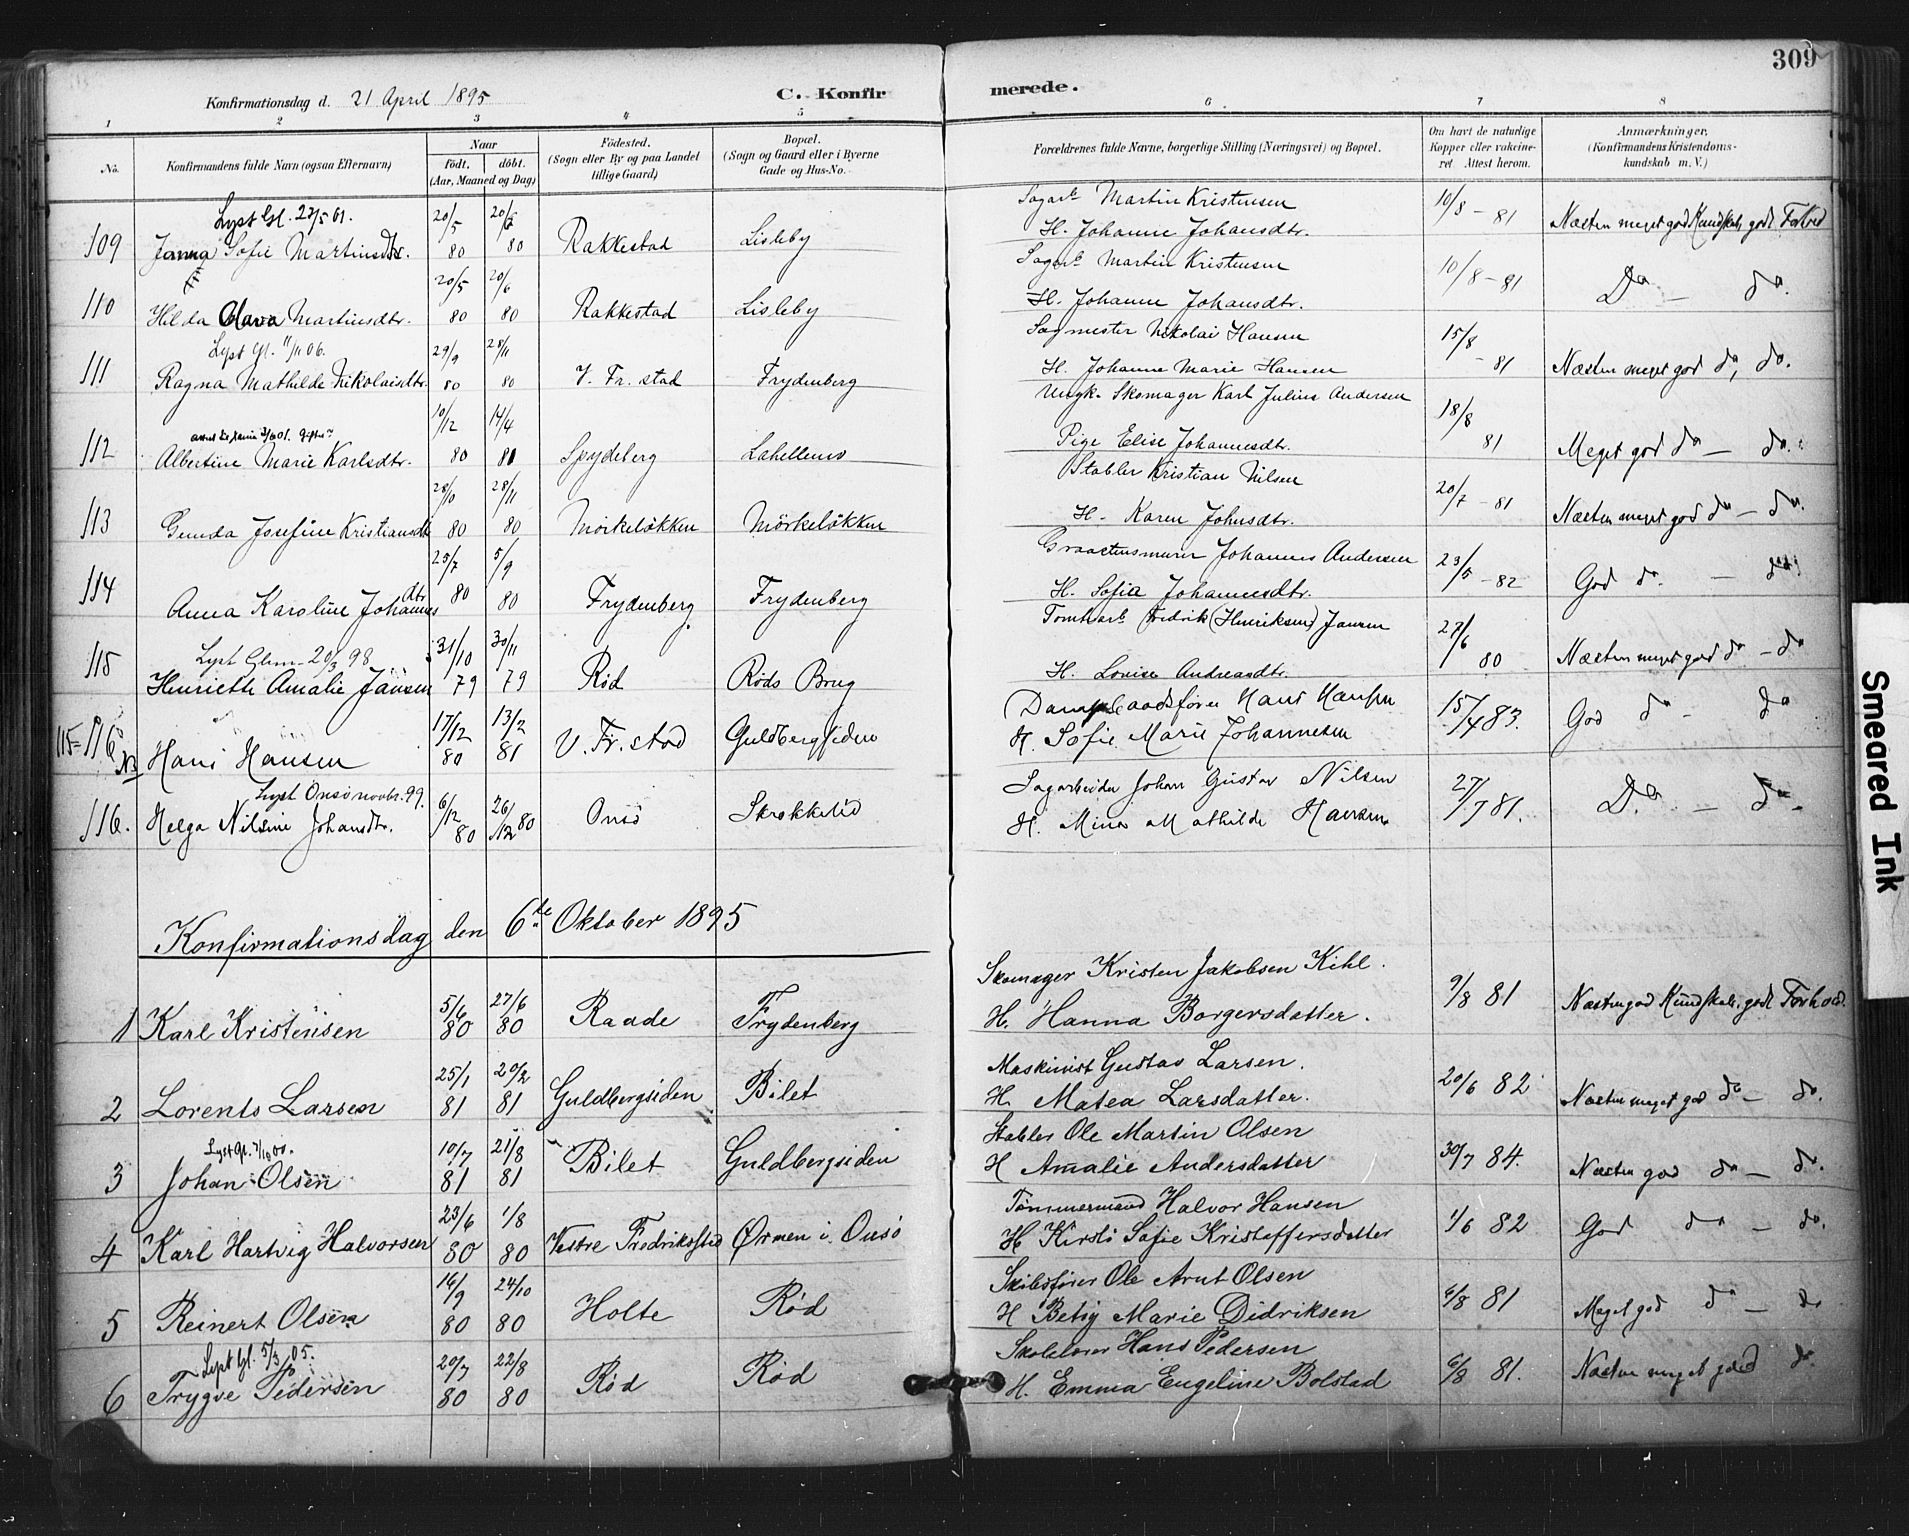 309
Konfirmationsdag d. 21 April 1895 C. Konfirmerede.
1 2 3 4 5 6 7 8
No. Konfirmandens fulde Navn (ogsaa Efternavn) Naar födt, döbt. (Aar, Maaned og Dag) Födested. (Sogn eller By og paa Landet tillige Gaard) Bopæl. (Sogn og Gaard eller i Byerne Gade og Hus-No. Forældrenes fulde Navne, borgerlige Stilling (Næringsvei) og Bopæl. Om havt de naturlige Kopper eller vakcineret. Attest herom. Anmærkninger, (Konfirmandens Kristendomskundskab m. V.)
Lyst Gl.
109 Janna Sofie Martinsdtr. 20/5 80 80 Rakkestad Lisleby Sagarb. Martin Kristensen H. Johanne Johansdtr. 10/8 - 81 Næsten meget god Kundskab, godt
110 Hilda Martinsdtr. 20/5 80 20/6 80 Rakkestad Lisleby Sagarb. Martin Kristensen H. Johanne Johansdtr. 10/8 - 81 Do - do.
Lyst Gl. 11/11 06.
111 Ragna Mathilde Nikolaisdtr. 29/9 80 28/11 80 V. Fr. stad Frydenberg Sagmester Nikolai Hansen H. Johanne Marie Hansen 15/8 - 81 Næsten meget god do, do.
112 Albertine Marie Karlsdtr. 10/12 80 14/4 81 Spydeberg Lahellemo Ungk. Skomager Karl Julius Andersen Pige Elise Johannesdtr. 18/8 81 Meget god do - do.
113 Gunda Josefine Kristiansdtr 28/10 80 28/11 80 Mörkelökken Mörkelökken Stabler Kristian Nilsen H. Karen Johnsdtr. 20/7 - 81 Næsten meget god do - do.
114 Anna Karoline Johannesdtr. 25/7 80 5/9 80 Frydenberg Frydenberg Graastensmurer Johannes Andersen H. Sofia Johannesdtr. 23/5 - 82 God do. - do.
Lyst Glem. 20/3 98
115 Henriette Amalie Jansen 31/10 79 30/11 79 Rød Røds Brug Tomtearb. Fredrik (Henriksen) Jansen H. Lovise Andreasdtr. 27/6 80 Næsten meget god do - do
115 = 116 NB Hans Hansen 17/12 80 13/2 81 V. Fr. stad Guldbergsiden Hans Hansen H. Sofie Marie Johannesen 15/4 83. God do - do
Lyst Onsö novbr. 99.
116. Helga Nilsine Johansdtr. 6/12 80 26/12 80 Onsö Skrokkelid Sagarbeider Johan Gustav Nilsen H. Mina Mathilde Hansen 27/7 81. Do. - do -
Konfirmationsdag den 6te Oktober 1895
1 Karl Kristensen 5/6 80 27/6 80 Raade Frydenberg Skomager Kristen Jakobsen Kihl. H. Hanna Borgersdatter. 9/8 81 Næsten god Kundskab, godt Forhold.
2 Lorents Larsen 25/1 81 20/2 81 Guldbergsiden Bilet Maskinist Gustav Larsen. H. Matea Larsdatter. 20/6 82 Næsten meget god do - do.
3 Johan Olsen 10/7 81 21/8 81 Bilet Guldbergsiden Stabler Ole Martin Olsen H Amalie Andersdatter 30/7 84. Næsten god do - do.
4 Karl Hartvig Halvorsen 23/6 80 1/8 80 Vestre Fredrikstad Ørmen i Onsö Tömmermand Halvor Hansen H Kirsti Sofie Kristoffersdatter 1/6 82 God do - do.
5 Reinert Olsen 16/9 80 24/10 80 Holte Rød Skibsfører Ole Arnt Olsen H Betsy Marie Didriksen 6/8 81 Meget god do - do
Lyst Gl. 5/3 05.
6 Trygve Pedersen 20/7 80 22/8 80 Rød Rød Skolelærer Hans Pedersen H. Emma Engeline Bolstad 6/8 81. Næsten meget god do
Smeared Ink